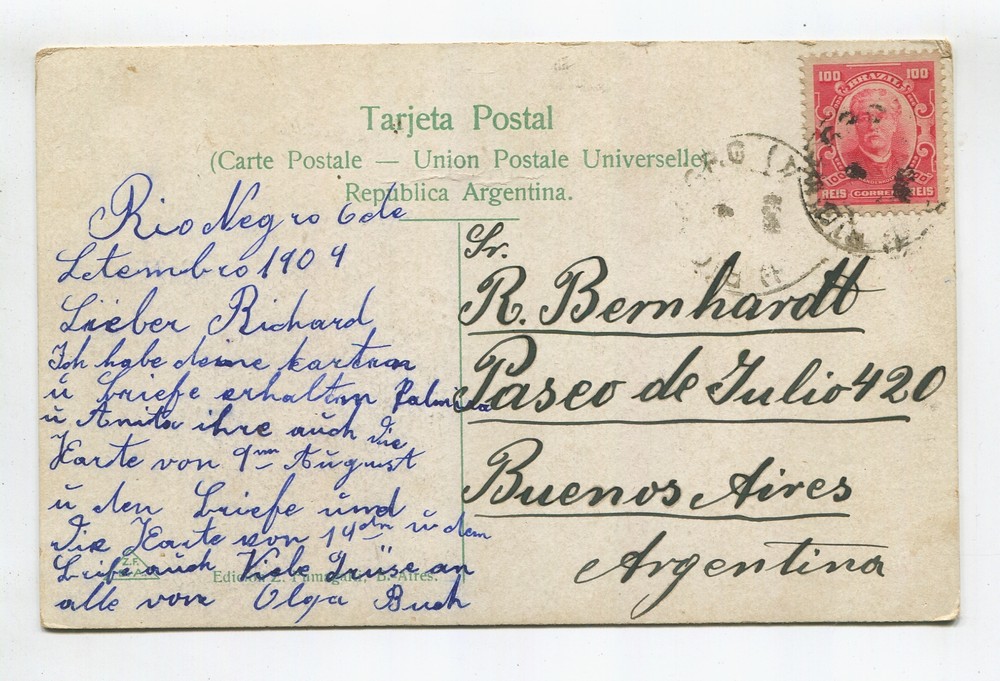 Tarjeta Postal
(Carte Postale — Union Postale Universelle)
República Argentina.
100 BRAZIL 100
REIS CORREIO REIS
Rio Negro 6 de
Setembro 1909
Lieber Richard
Ich habe deine karten
u briefe erhalten Palmira
u Anita ihre auch die
Karte von 9ten August
u den briefe und
die Karte von 14ten u dem
briefe auch Viele Grüse an
alle von Olga Buch
Sr.
R. Bernhardt
Paseo de Julio 420
Buenos Aires
Argentina
Z.F.
B.A.
Edición Z. Fumagalli, B. Aires.